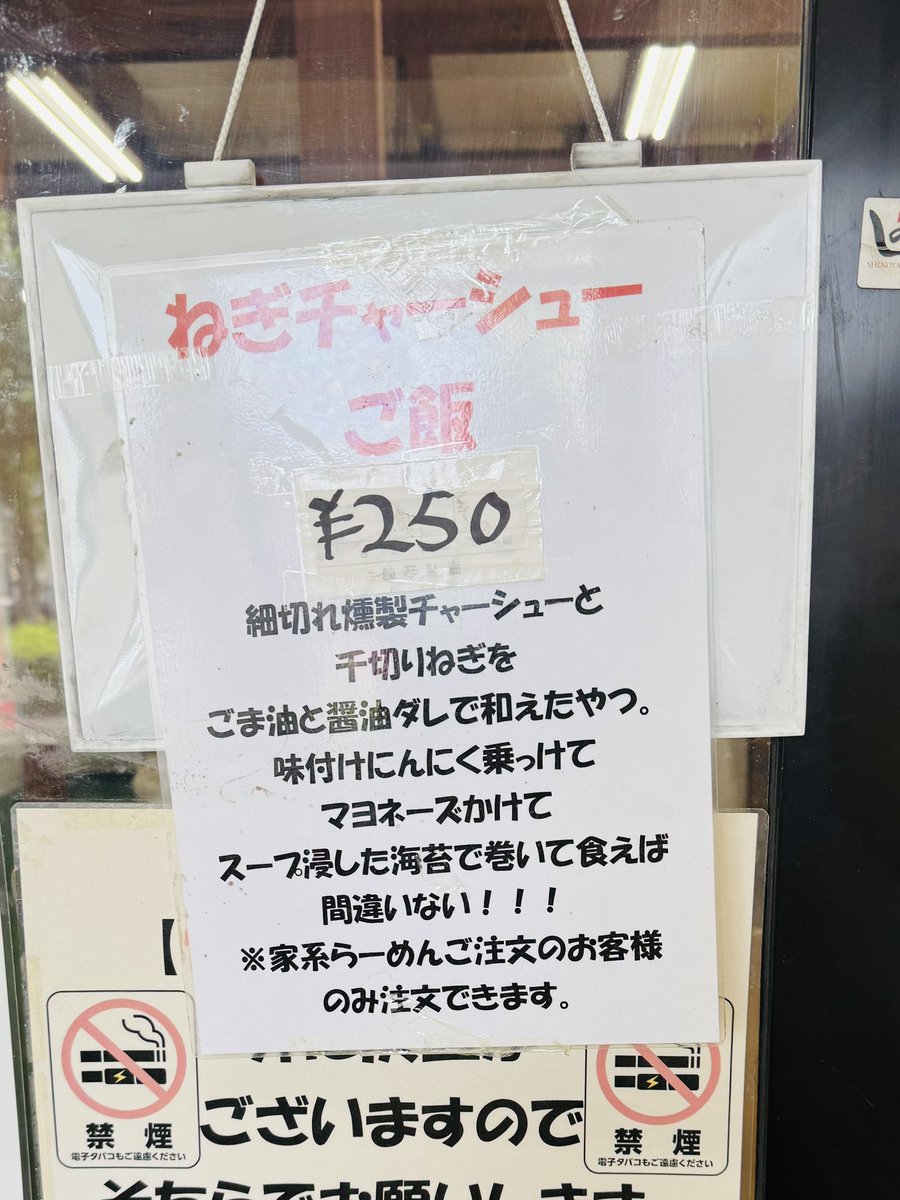 ねぎチャーシュー
ご飯
¥250
細切れ燻製チャーシューと
千切りねぎを
ごま油と醤油ダレで和えたやつ。
味付けにんにく乗っけて
マヨネーズかけて
スープ浸した海苔で巻いて食えば
間違いない！！！
※家系らーめんご注文のお客様
のみ注文できます。
【
ございますので
禁煙
電子タバコもご遠慮ください
禁煙
電子タバコもご遠慮ください
そちらでお願いします